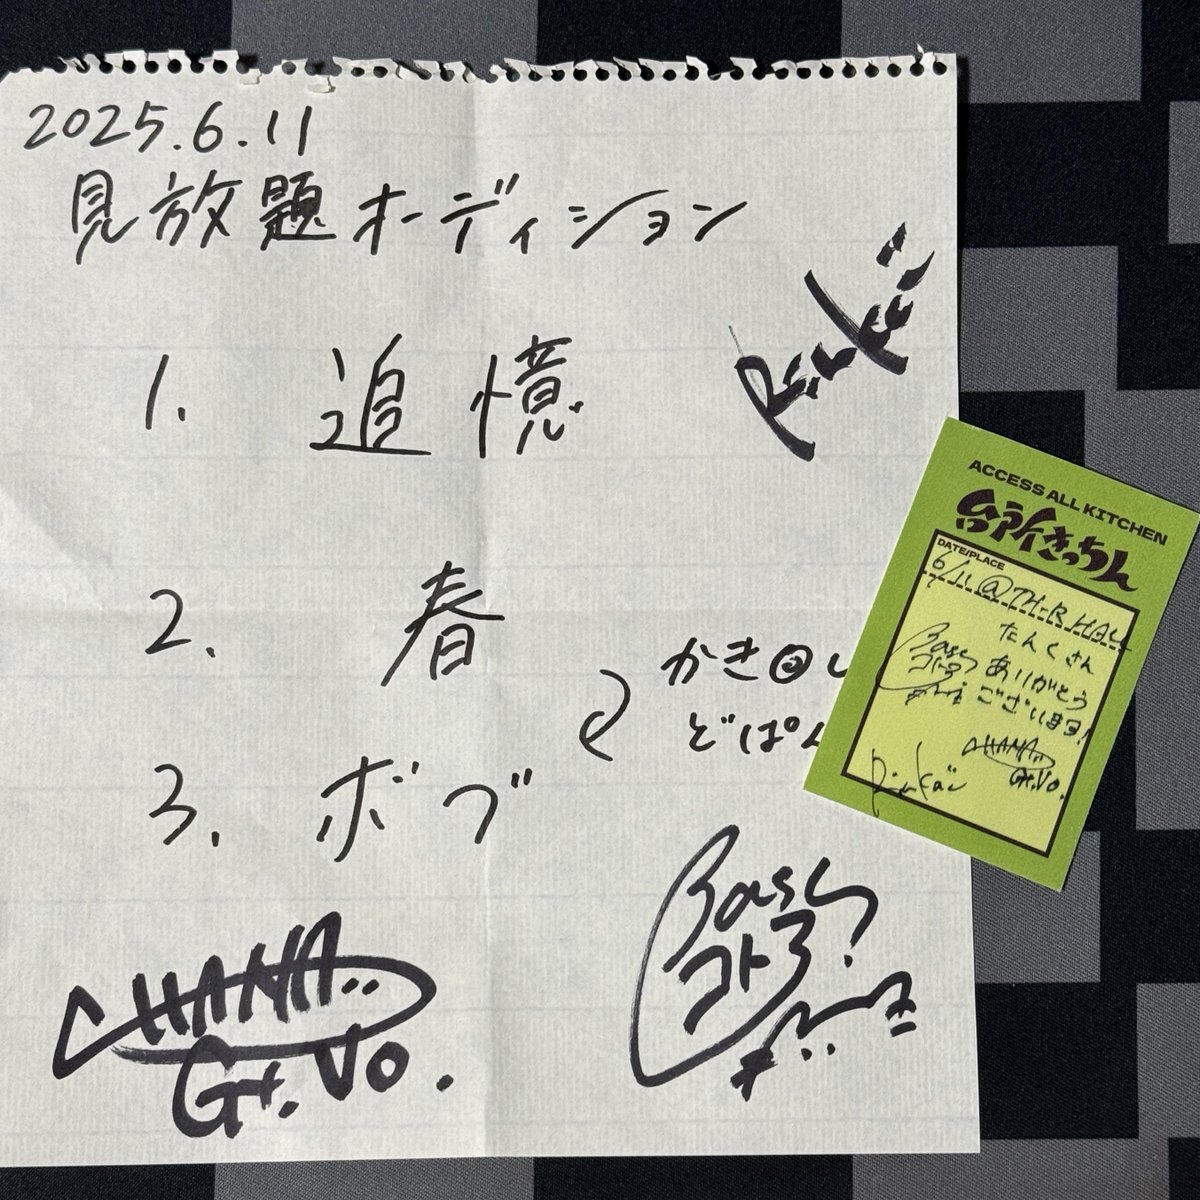 2025.6.11
見放題オーディション
1. 追憶
2. 春
かき
どぱん
3. ボブ
HANA
Gt. Vo.
Bass
コトヲ
ACCESS ALL KITCHEN
台所きっちん
DATE/PLACE
6/11 @TH-R HALL
たんくさん
ありがとう
ございます!
Bass
HANA
Gt. Vo.